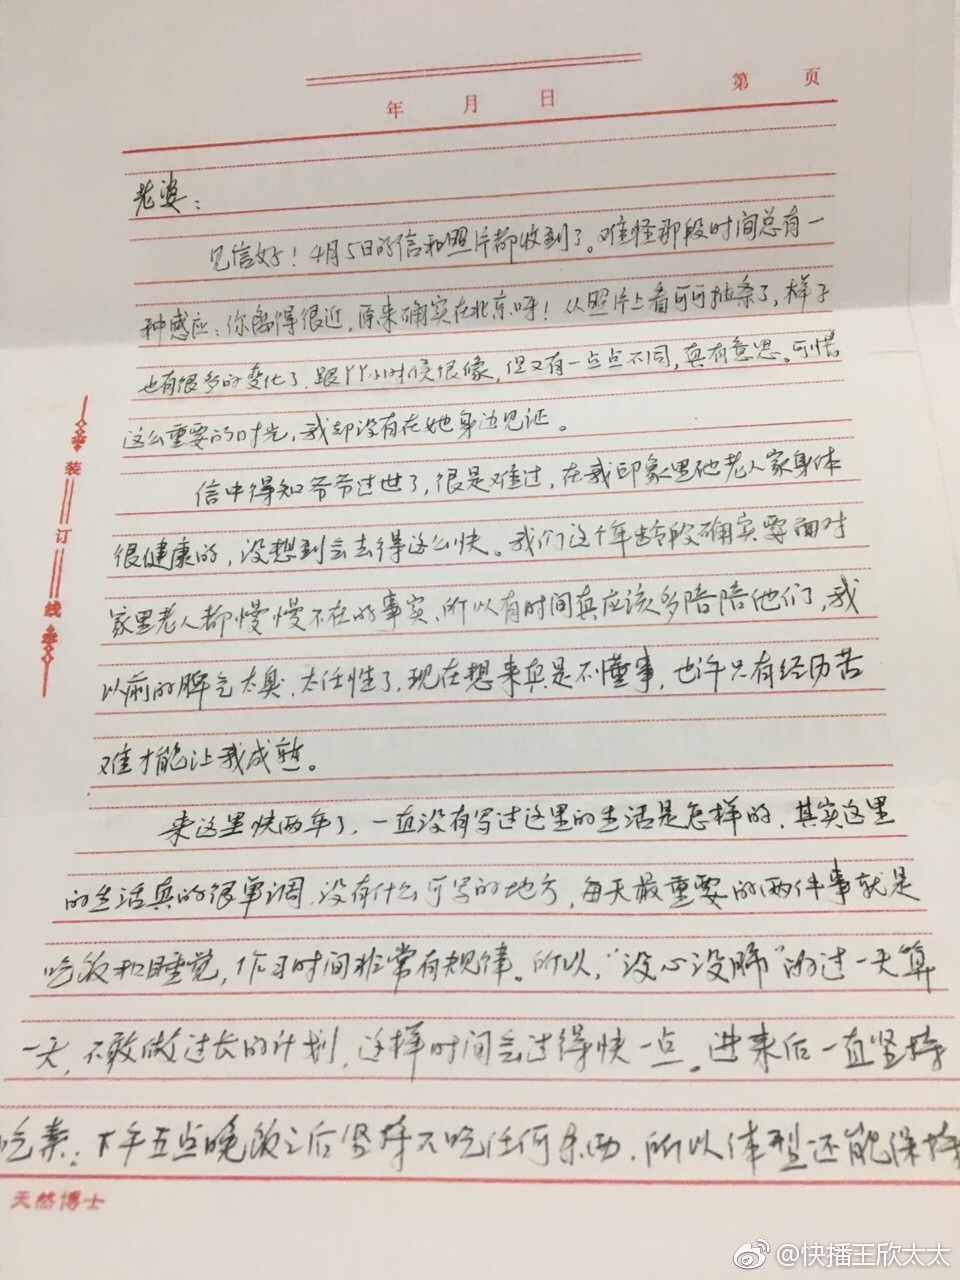 年 月 日 第 页
老婆：
见信好！4月5日的信和照片都收到了。难怪那段时间总有一
种感应：你离得很近，原来确实在北京呀！从照片上看可可抽条了，样子
也有很多的变化了，跟丫丫小时候很像，但又有一点点不同，真有意思。可惜
这么重要的时光，我却没有在她身边见证。
信中得知爷爷过世了，很是难过，在我印象里他老人家身体
很健康的，没想到会去得这么快。我们这个年龄段确实要面对
家里老人都慢慢不在的事实，所以有时间真应该多陪陪他们，我
以前的脾气太臭，太任性了，现在想来真是不懂事，也许只有经历苦
难才能让我成熟。
来这里快两年了，一直没有写过这里的生活是怎样的，其实这里
的生活真的很单调，没有什么可写的地方，每天最重要的两件事就是
吃饭和睡觉，作习时间非常有规律。所以，“没心没肺”的过一天算
一天，不敢做过长的计划，这样时间会过得快一点。进来后一直坚持
吃素，下午五点晚饭之后坚持不吃任何东西，所以体型还能保持
装订线
天然博士
@快播王欣太太